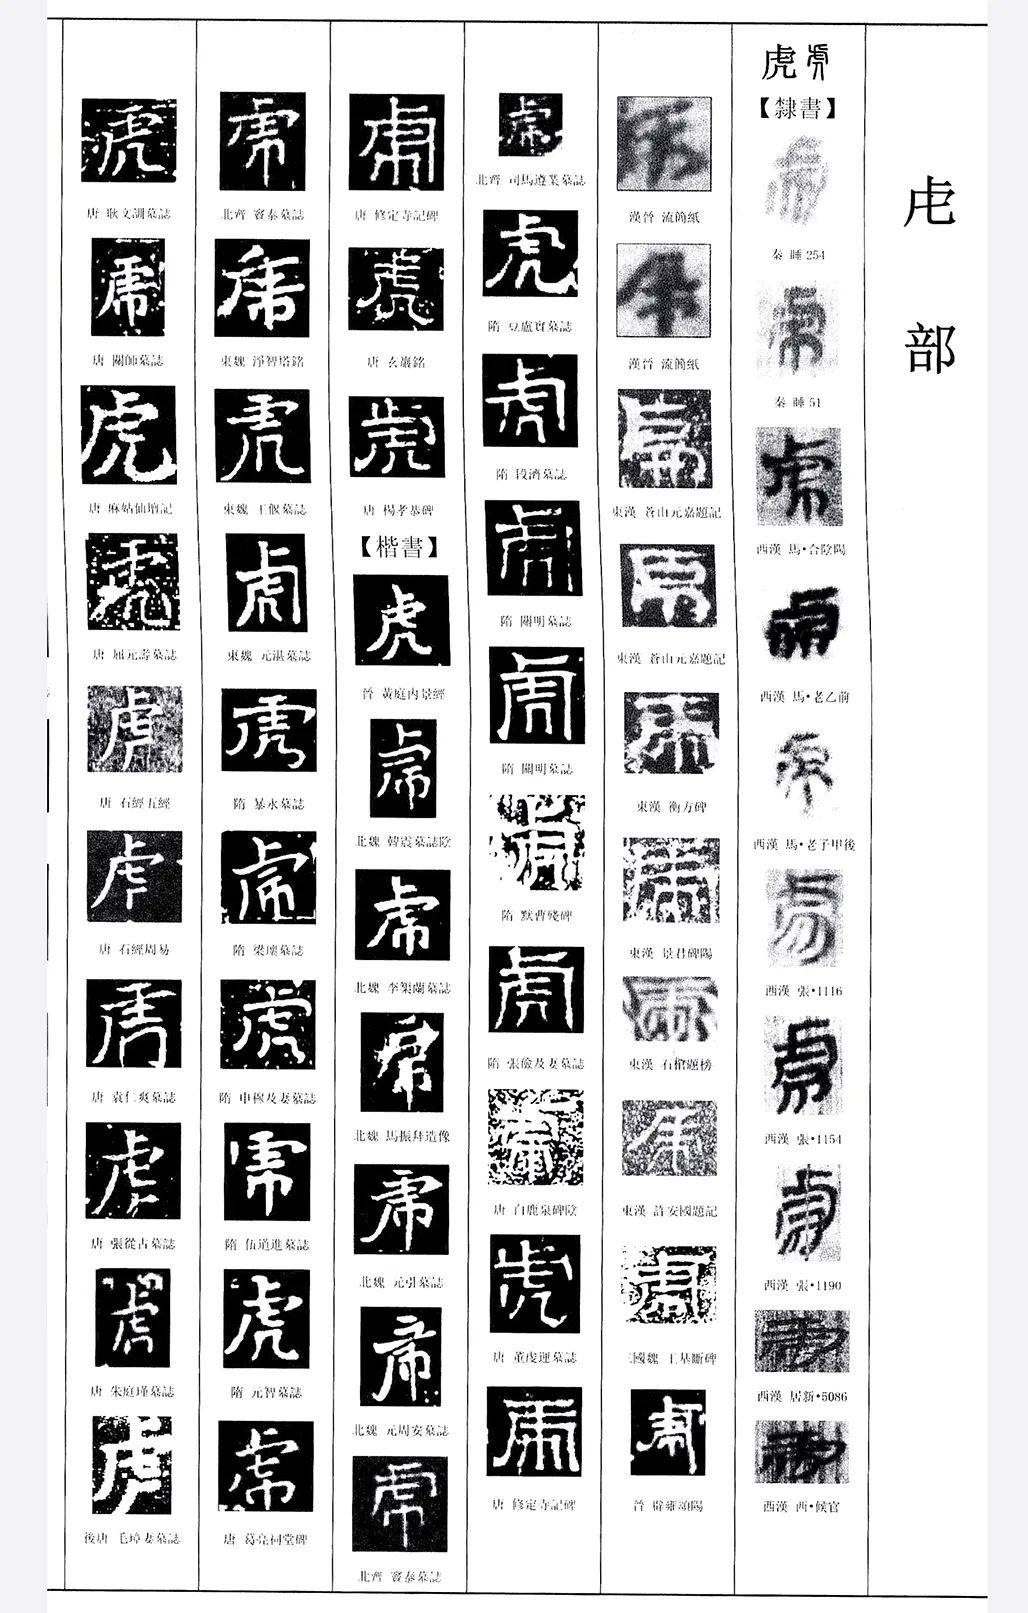 虍部
虎
【隸書】
秦 睡254
秦 睡51
西漢 馬•合陰陽
西漢 馬•老乙前
西漢 馬•老子甲後
西漢 張•1116
西漢 張•1154
西漢 張•1190
西漢 居新•5086
西漢 西•候官
漢晉 流簡紙
漢晉 流簡紙
東漢 蒼山元嘉題記
東漢 蒼山元嘉題記
東漢 衡方碑
東漢 景君碑陽
東漢 石棺題榜
東漢 許安國題記
三國魏 王基斷碑
晉 辟雍頌陽
北齊 司馬遵業墓誌
隋 豆盧實墓誌
隋 段濟墓誌
隋 關明墓誌
隋 關明墓誌
隋 默曹殘碑
隋 張儉及妻墓誌
唐 白鹿泉碑陰
唐 董虔運墓誌
唐 修定寺記碑
唐 修定寺記碑
唐 玄巖銘
唐 楊孝恭碑
【楷書】
晉 黃庭內景經
北魏 韓震墓誌陰
北魏 李榘蘭墓誌
北魏 馬振拜造像
北魏 元引墓誌
北魏 元周安墓誌
北齊 竇泰墓誌
北齊 竇泰墓誌
東魏 淨智塔銘
東魏 王偃墓誌
東魏 元湛墓誌
隋 暴永墓誌
隋 梁瓌墓誌
隋 申穆及妻墓誌
隋 伍道進墓誌
隋 元智墓誌
唐 葛亮祠堂碑
唐 耿文訓墓誌
唐 關師墓誌
唐 麻姑仙壇記
唐 屈元壽墓誌
唐 石經五經
唐 石經周易
唐 袁仁爽墓誌
唐 張從古墓誌
唐 朱庭瑾墓誌
後唐 毛璋妻墓誌